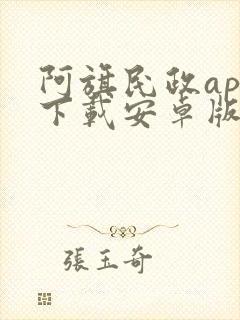 阿旗民政ap
下载安卓版
張玉奇